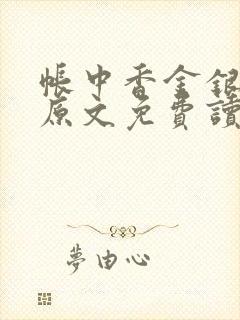 帳中香金銀
原文免費讀
夢由心